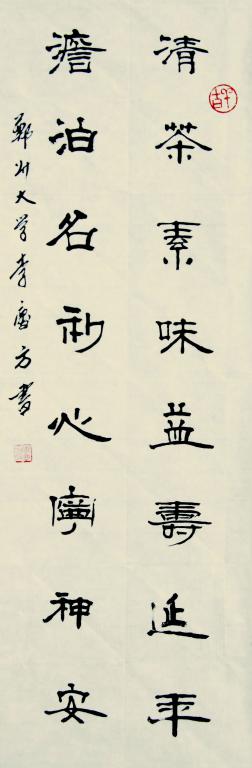 清茶素味益壽延年
澹泊名利心寧神安
鄭州大学李慶方書